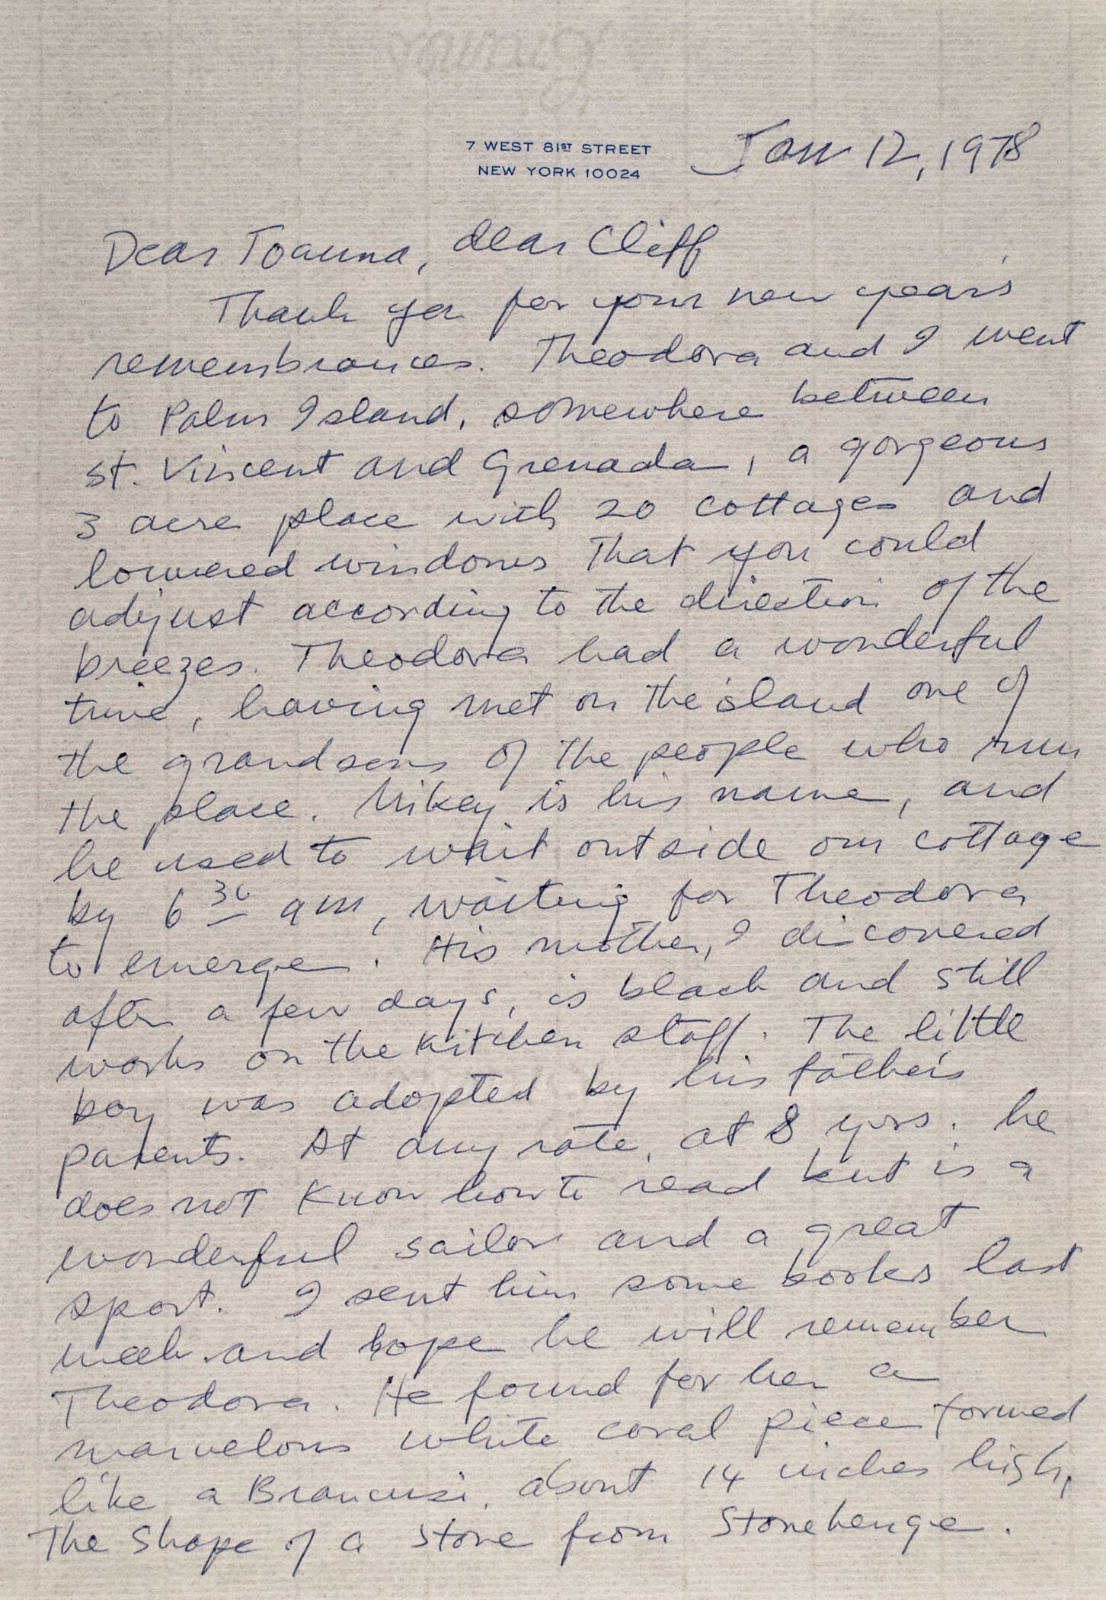 7 WEST 81ST STREET
NEW YORK 10024
Jan 12, 1978
Dear Joanna, dear Cliff
Thank you for your new year's
remembrances. Theodora and I went
to Palm Island, somewhere between
St. Vincent and Grenada, a gorgeous
3 acre place with 20 cottages and
louvered windows that you could
adjust according to the direction of the
breezes. Theodora had a wonderful
time, having met on the island one of
the grandsons of the people who run
the place. Mikey is his name, and
he used to wait outside our cottage
by 6 30 am, waiting for Theodora
to emerge. His mother, I discovered
after a few days, is black and still
works on the kitchen staff. The little
boy was adopted by his father's
parents. At any rate, at 8 yrs. he
does not know how to read but is a
wonderful sailor and a great
sport. I sent him some books last
week and hope he will remember
Theodora. He found for her a
marvelous white coral piece formed
like a Brancusi, about 14 inches high,
The shape of a stone from Stonehenge.